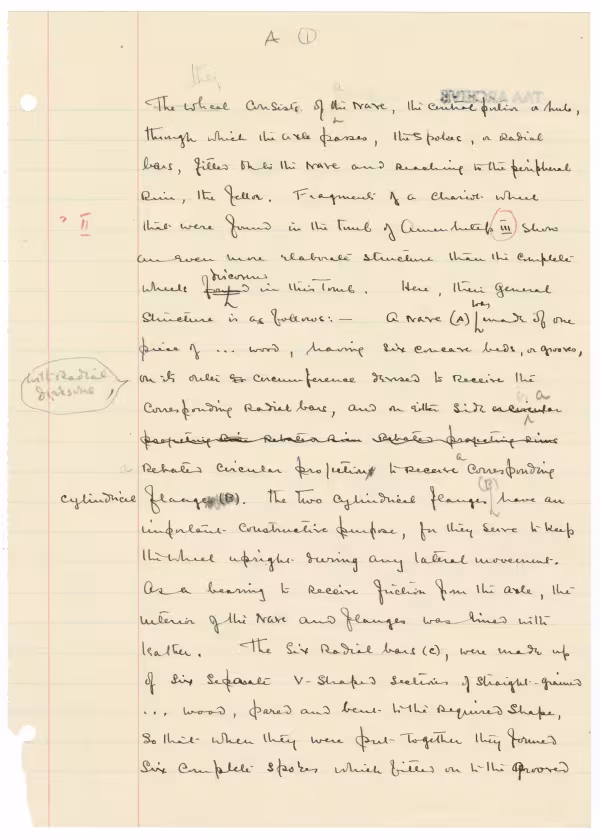 A ①
their
The wheel consists of the Nave, the central portion or hub,
a
through which the axle passes, the Spokes, or Radial
bars, fitted on to the Nave and Reaching to the peripheral
Rim, the felloe. Fragments of a Chariot wheel
? II
that were found in the tomb of Amenhetep III show
an even more elaborate structure than the complete
discovered
wheels found in this Tomb. Here, their General
was
Structure is as follows:— A Nave (A) made of one
piece of ... wood, having six concave beds, or grooves,
with Radial
divisions,
on its outer circumference devised to Receive the
Corresponding Radial bars, and on either side a circular
projecting Rim Rebated Rim Rebated projecting Rims
a
Rebated Circular projection to receive a corresponding
cylindrical flange (B). The two cylindrical flanges (B) have an
important constructive purpose, for they serve to keep
the wheel upright during any lateral movement.
As a bearing to receive friction from the axle, the
interior of the Nave and flanges was lined with
leather. The Six Radial bars (C), were made up
of Six Separate V-Shaped Sections of Straight-grained
... wood, pared and bent to the Required Shape,
So that when they were put together they formed
Six Complete Spokes which fitted on to the grooved